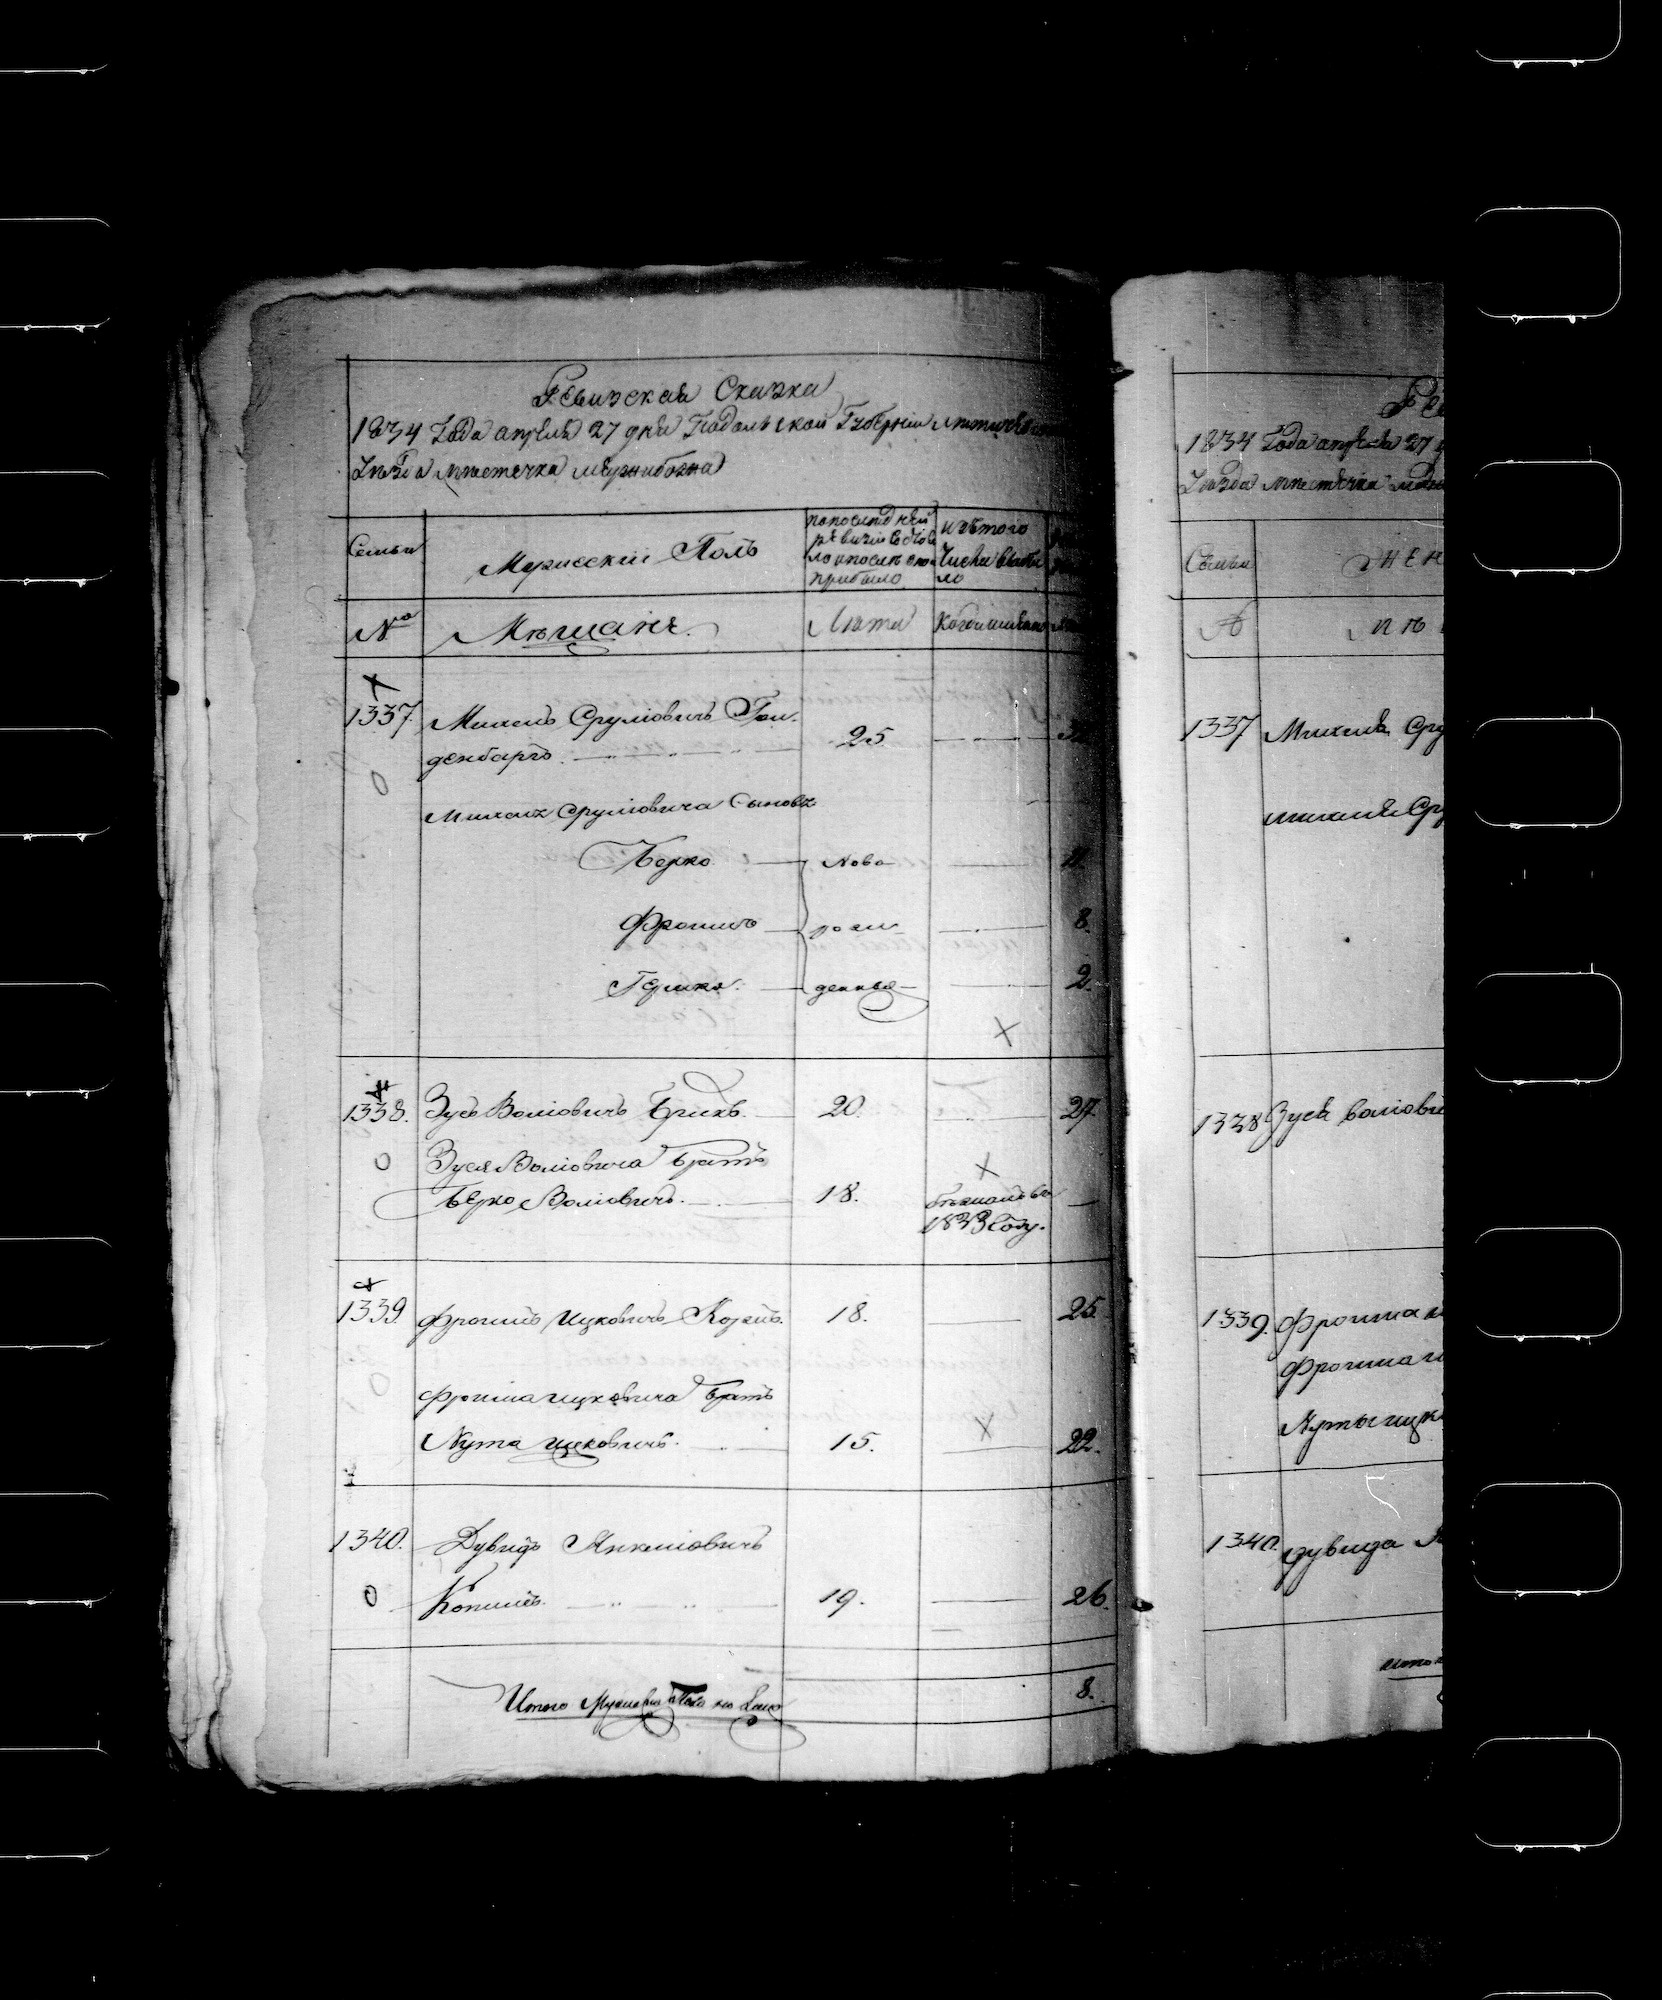 Ревизская Сказка
1834 Года апреля 27 дня Подольской Губернии Литичевского
Уезда местечка межибожа
Семьи
Мужеский Полъ
по последней
ревизии состоя
ло и после оной
прибыло
изъ того
Числа выбы
ло
№
Мещане
Лета
Когда именно
1337. Михель Сруліовичъ Гол
денбаргъ 25
0
Михеля Сруліовича Сыновъя
Берко Ново 11.
Фроимъ рож 8.
Гершко денные 2.
1338. Зусь Воліовичъ Брикъ 20. 27
0 Зуся Воліовича братъ
Берко Воліовичъ 18. бежалъ въ
1833 Году.
1339. Фроимъ Ицковичъ 18. 25
0 Фроима ицковича братъ
Нута ицковичъ 15. 22.
1340. Дувидъ Янкеліовичъ
0 19. 26.
Итого Мужеска Пола на Лицо 8.
Ре
1834 Года апреля 27
Уезда местечка
Семьи
ЖЕН
№
ЛѢ
1337 Михеля Сру
михеля Ср
1338 Зуся Воліови
1339. Фроима
Фроима и
Нуты ицк
1340. дувида Я
итог